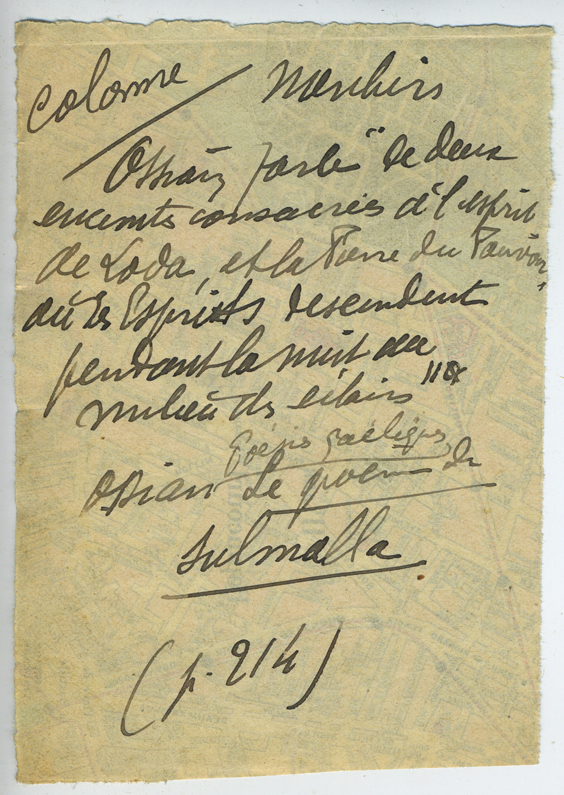 colonne / Menhirs
Ossian parle "de deux
enceintes consacrées à l'esprit
de Loda, et la Pierre du Pouvoir,
où les Esprits descendent
pendant la nuit au
milieu des éclairs"
Poésies gaéliques
Ossian Le poème de
Sulmalla
(p. 214)